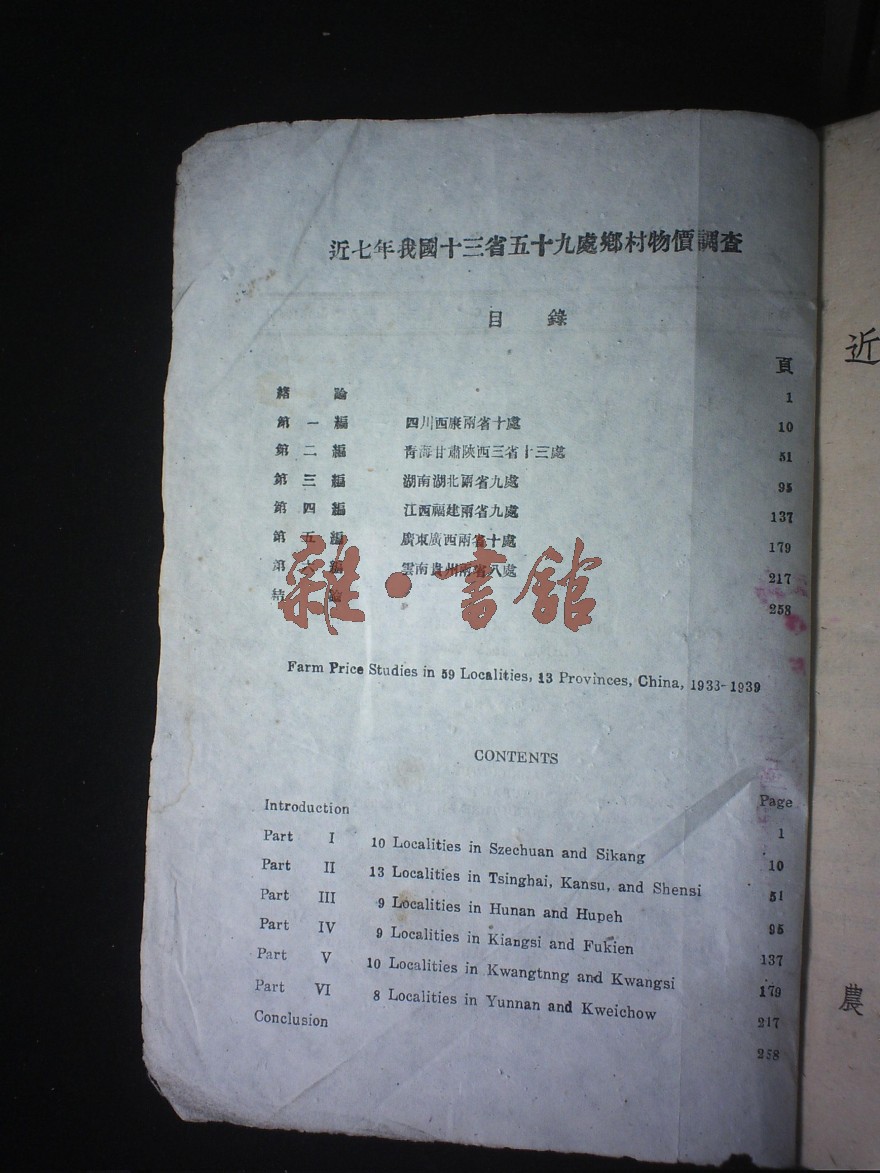 近七年我國十三省五十九處鄉村物價調查
目 錄
頁
緒 論 1
第 一 編 四川西康兩省十處 10
第 二 編 青海甘肅陝西三省十三處 51
第 三 編 湖南湖北兩省九處 95
第 四 編 江西福建兩省九處 137
第 五 編 廣東廣西兩省十處 179
第 六 編 雲南貴州兩省八處 217
結 論 258
雜·書館
Farm Price Studies in 59 Localities, 13 Provinces, China, 1933-1939
CONTENTS
Page
Introduction 1
Part I 10 Localities in Szechuan and Sikang 10
Part II 13 Localities in Tsinghai, Kansu, and Shensi 51
Part III 9 Localities in Hunan and Hupeh 95
Part IV 9 Localities in Kiangsi and Fukien 137
Part V 10 Localities in Kwangtnng and Kwangsi 179
Part VI 8 Localities in Yunnan and Kweichow 217
Conclusion 258
近
農